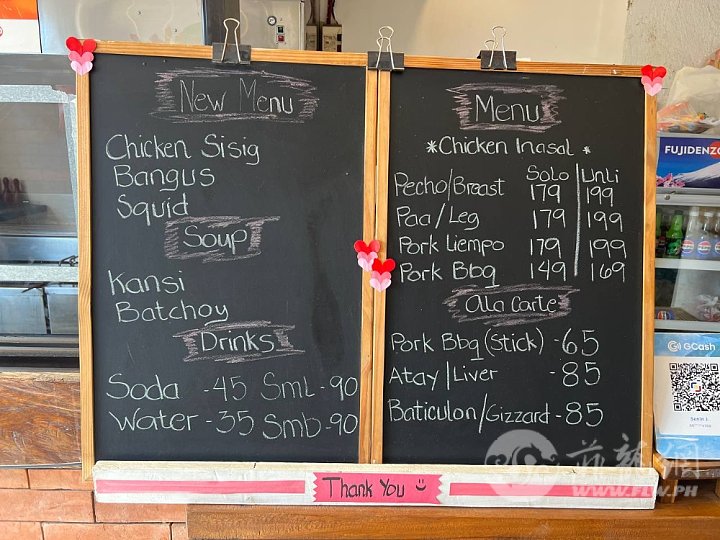 New Menu
Chicken Sisig
Bangus
Squid
Soup
Kansi
Batchoy
Drinks
Soda - 45 Sml - 90
Water - 35 Smb - 90
Menu
*Chicken Inasal *
Solo Unli
Pecho/Breast 179 199
Paa/Leg 179 199
Pork Liempo 179 199
Pork Bbq 149 169
Ala Carte
Pork Bbq (Stick) - 65
Atay/Liver - 85
Baticulon/Gizzard - 85
Thank You
FUJIDENZO
GCash
菲龍網
WWW.FLW.PH